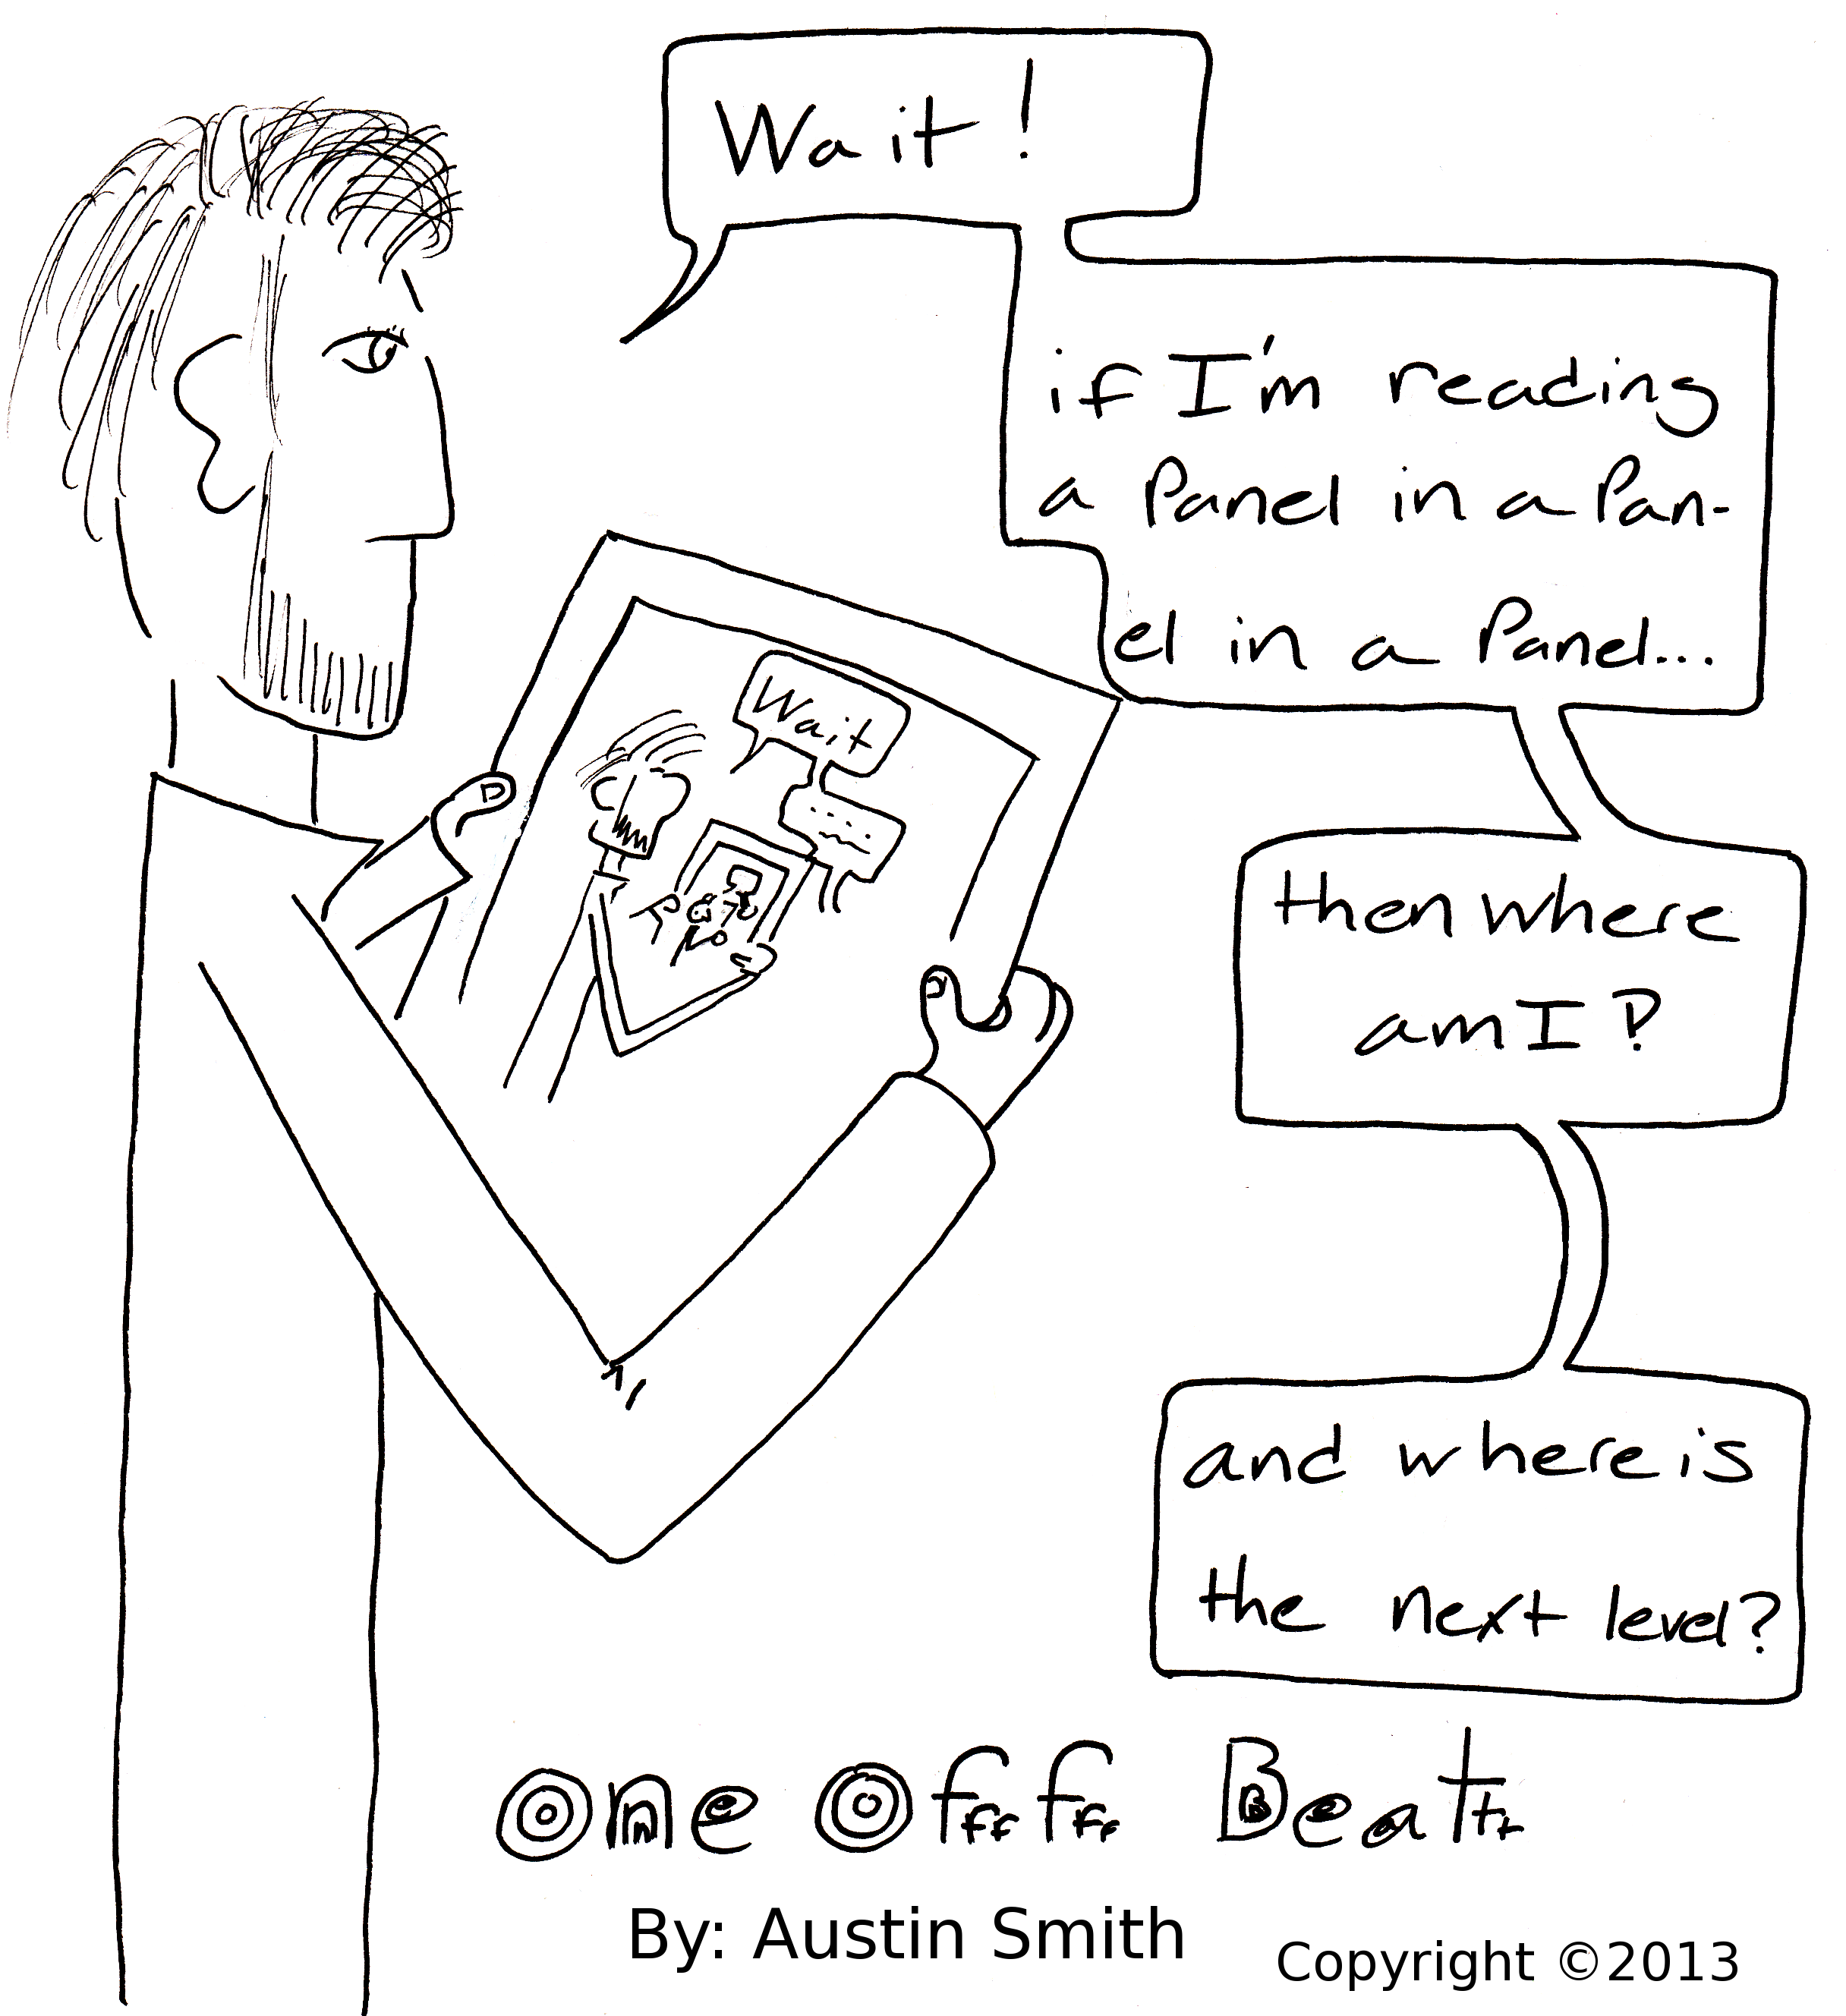 Wait!
if I'm reading
a Panel in a Pan-
el in a Panel...
then where
am I?
and where is
the next level?
Wait
One Off Beat
By: Austin Smith
Copyright ©2013